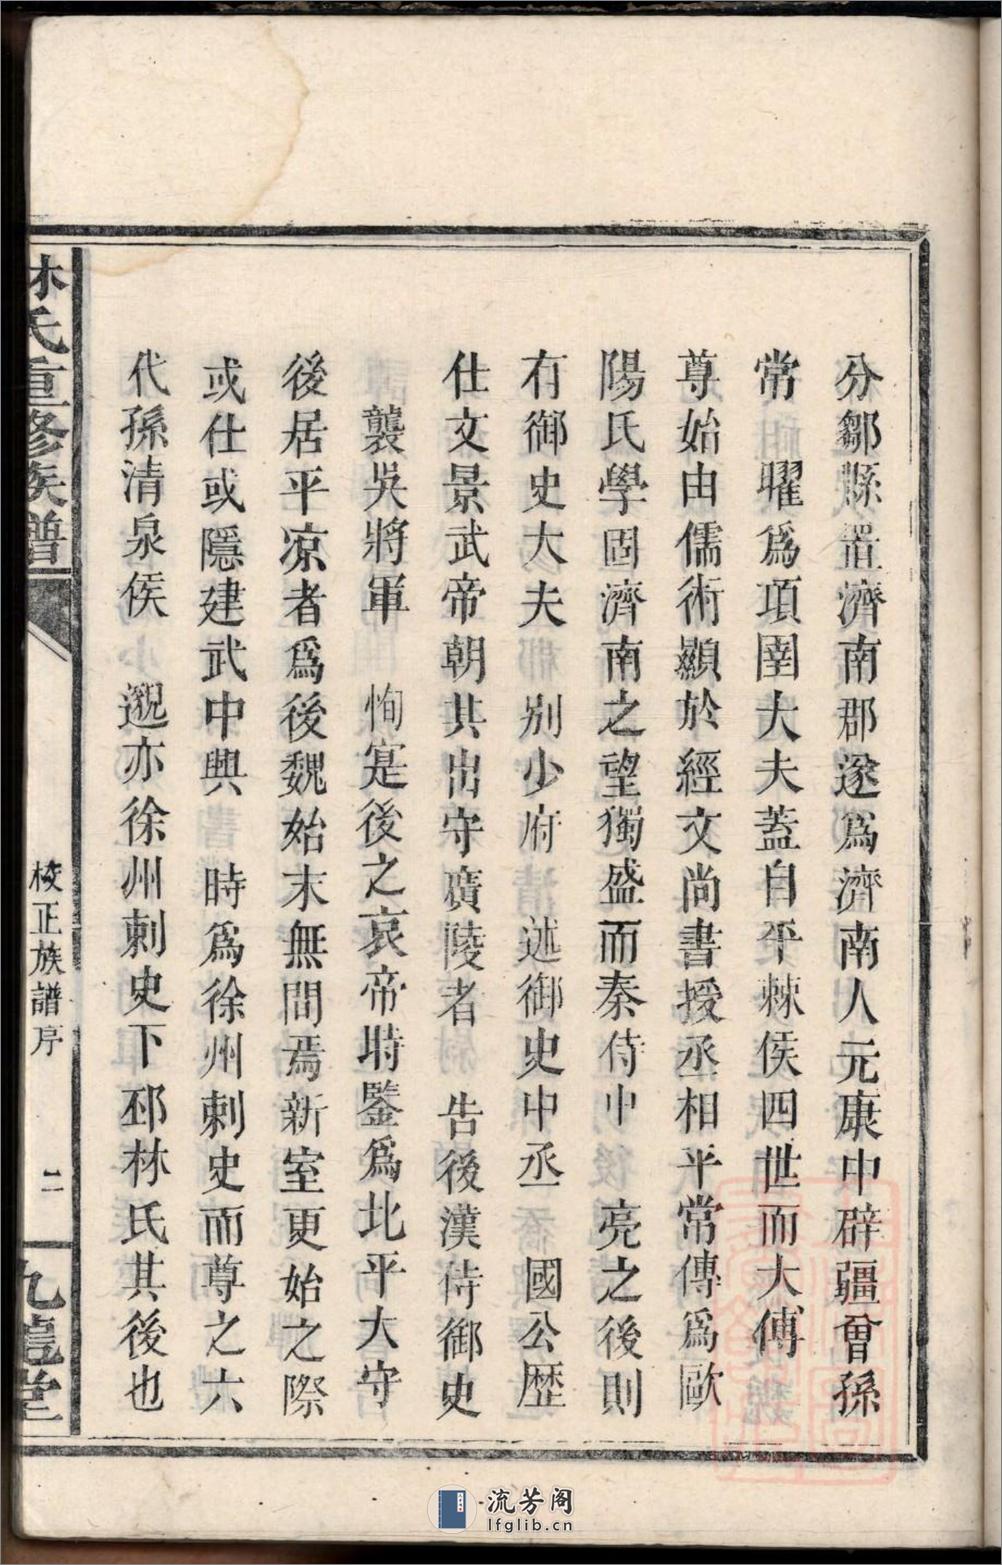 分鄒縣置濟南郡遂爲濟南人元康中辟疆曾孫
常 曜爲項圉大夫蓋自平棘侯四世而大傅
尊始由儒術顯於經文尚書授丞相平常傳爲歐
陽氏學固濟南之望獨盛而秦侍中 亮之後則
有御史大夫 别少府 述御史中丞 國公歴
仕文景武帝朝其出守廣陵者 告後漢侍御史
襲吳將軍 恂寔後之哀帝時鑒爲北平大守
後居平凉者爲後魏始末無間焉新室更始之際
或仕或隱建武中興 時爲徐州刺史而尊之六
代孫清泉侯 邈亦徐州刺史下邳林氏其後也
林氏重修族譜
校正族譜序
二
九龍堂
流芳阁
lfglib.cn